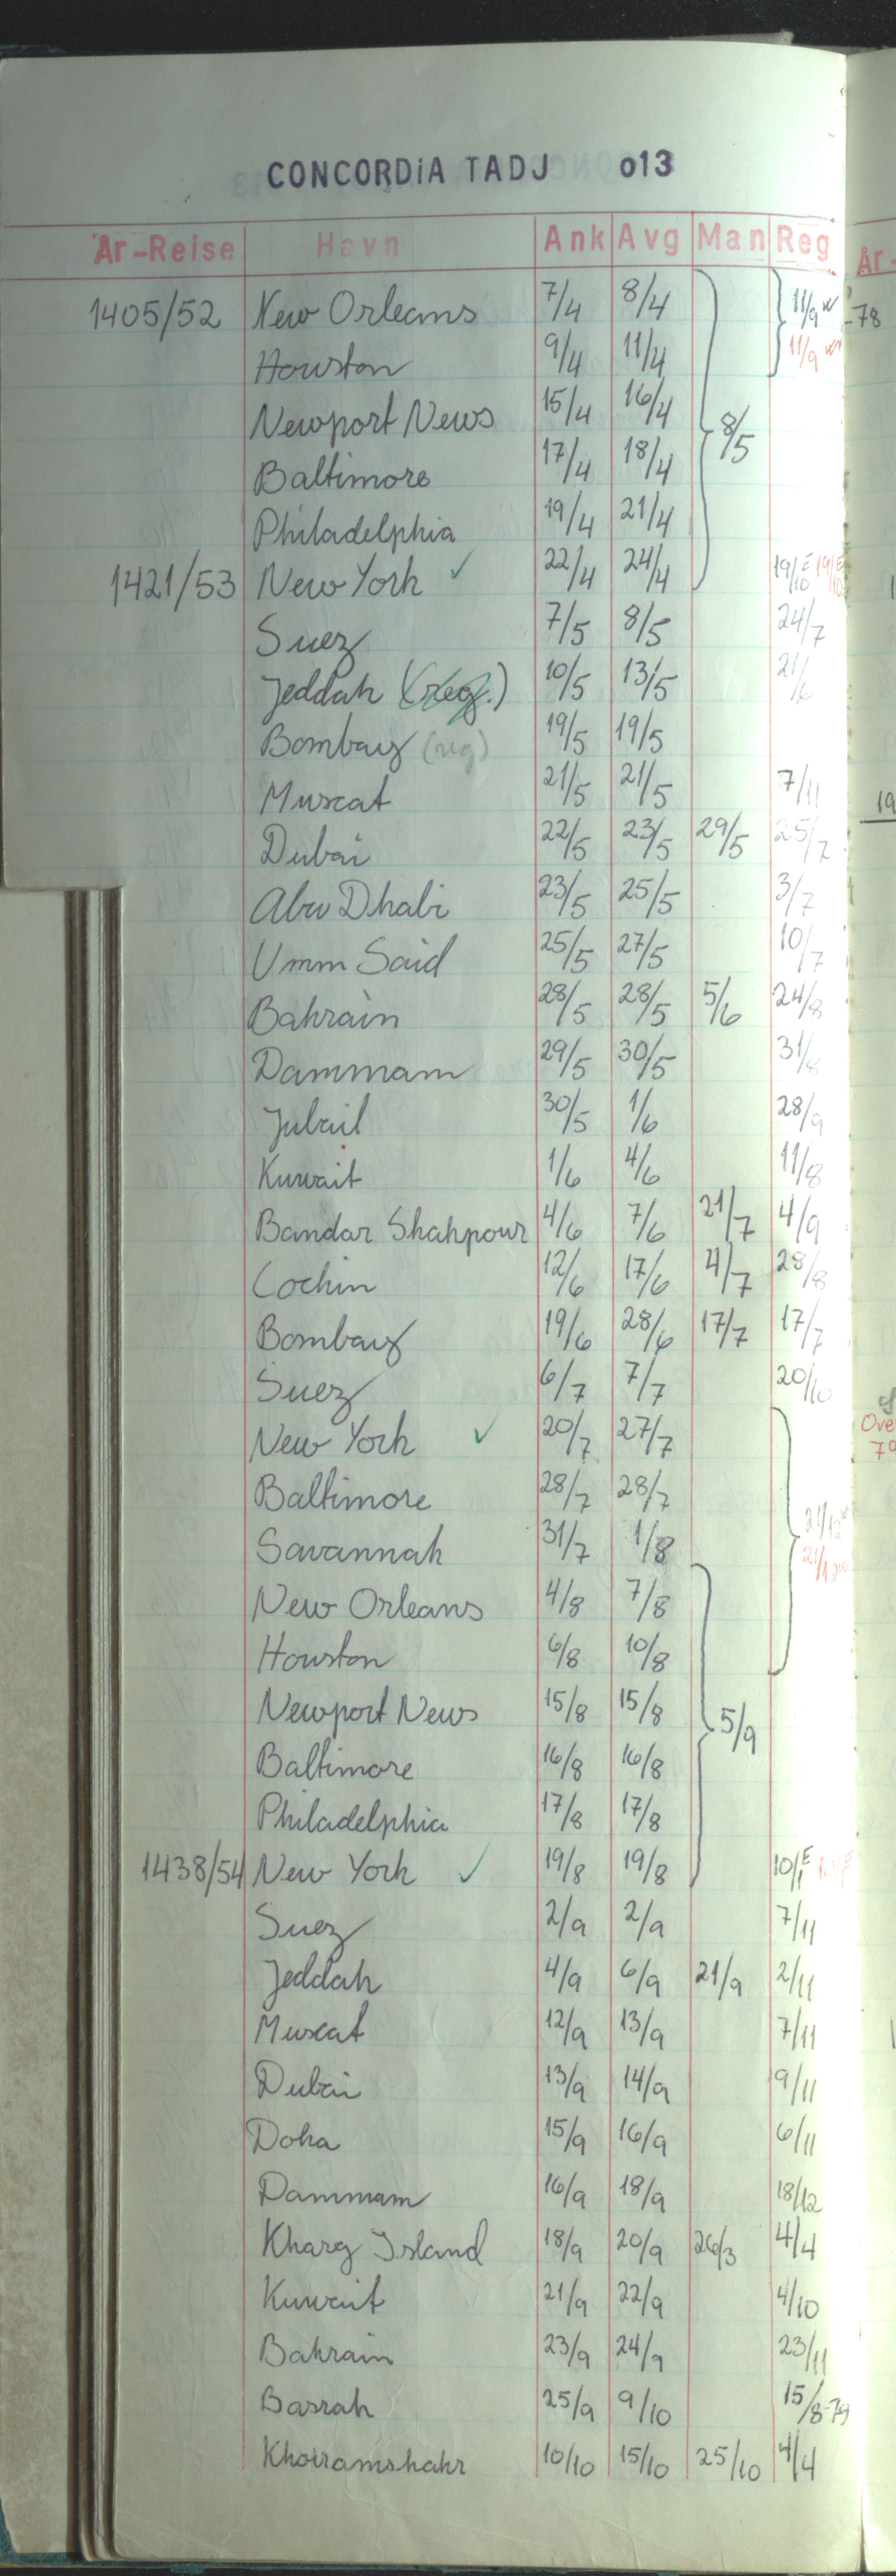 CONCORDiA TADJ 013
År-Reise Havn Ank Avg Man Reg
1405/52 New Orleans 7/4 8/4 11/9
Houston 9/4 11/4 11/9
Newport News 15/4 16/4 8/5
Baltimore 17/4 18/4
Philadelphia 19/4 21/4
1421/53 New York ✓ 22/4 24/4 19/10 E 19/10 E
Suez 7/5 8/5 24/7
Jeddah (reg.) 10/5 13/5 21/6
Bombay (reg) 19/5 19/5
Muscat 21/5 21/5 7/11
Dubai 22/5 23/5 29/5 25/7
Abu Dhabi 23/5 25/5 3/7
Umm Said 25/5 27/5 10/7
Bahrain 28/5 28/5 5/6 24/8
Dammam 29/5 30/5 31/8
Jubail 30/5 1/6 28/9
Kuwait 1/6 4/6 11/8
Bandar Shahpour 4/6 7/6 21/7 4/9
Cochin 12/6 17/6 4/7 28/8
Bombay 19/6 28/6 17/7 17/7
Suez 6/7 7/7 20/10
New York ✓ 20/7 27/7
Baltimore 28/7 28/7
Savannah 31/7 1/8 21/12 21/12
New Orleans 4/8 7/8
Houston 6/8 10/8
Newport News 15/8 15/8 5/9
Baltimore 16/8 16/8
Philadelphia 17/8 17/8
1438/54 New York ✓ 19/8 19/8 10/1 E
Suez 2/9 2/9 7/11
Jeddah 4/9 6/9 21/9 2/11
Muscat 12/9 13/9 7/11
Dubai 13/9 14/9 9/11
Doha 15/9 16/9 6/11
Dammam 16/9 18/9 18/12
Kharg Island 18/9 20/9 26/3 4/4
Kuwait 21/9 22/9 4/10
Bahrain 23/9 24/9 23/11
Basrah 25/9 9/10 15/8-79
Khorramshahr 10/10 15/10 25/10 4/4
År-
-78
19
Ove
79